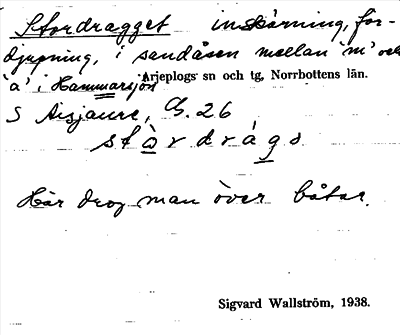 Stordragget inskärning, för-
djupning, i sandåsen mellan 'm' och
'a' i Hammarsjön
Arjeplogs sn och tg, Norrbottens län.
S Aisjaure, G. 26
stòrdrágə
Här drog man över båtar.
Sigvard Wallström, 1938.